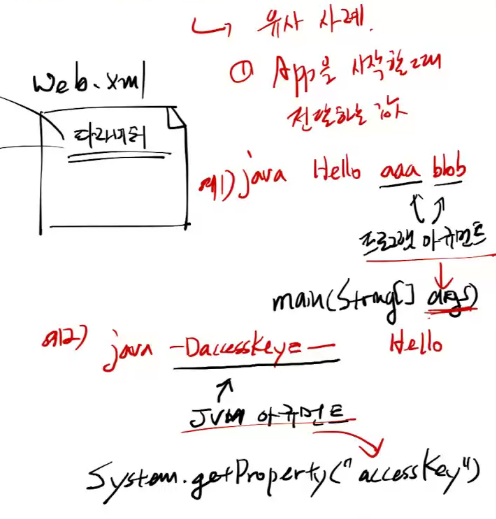 ↳ 유사 사례.
① App을 시작할 때
전달하는 값
web.xml
파라미터
예1) java Hello aaa bbb
프로그램 아규먼트
main(String[] args)
예2) java -DaccessKey=— Hello
JVM 아규먼트
System.getProperty("accessKey")